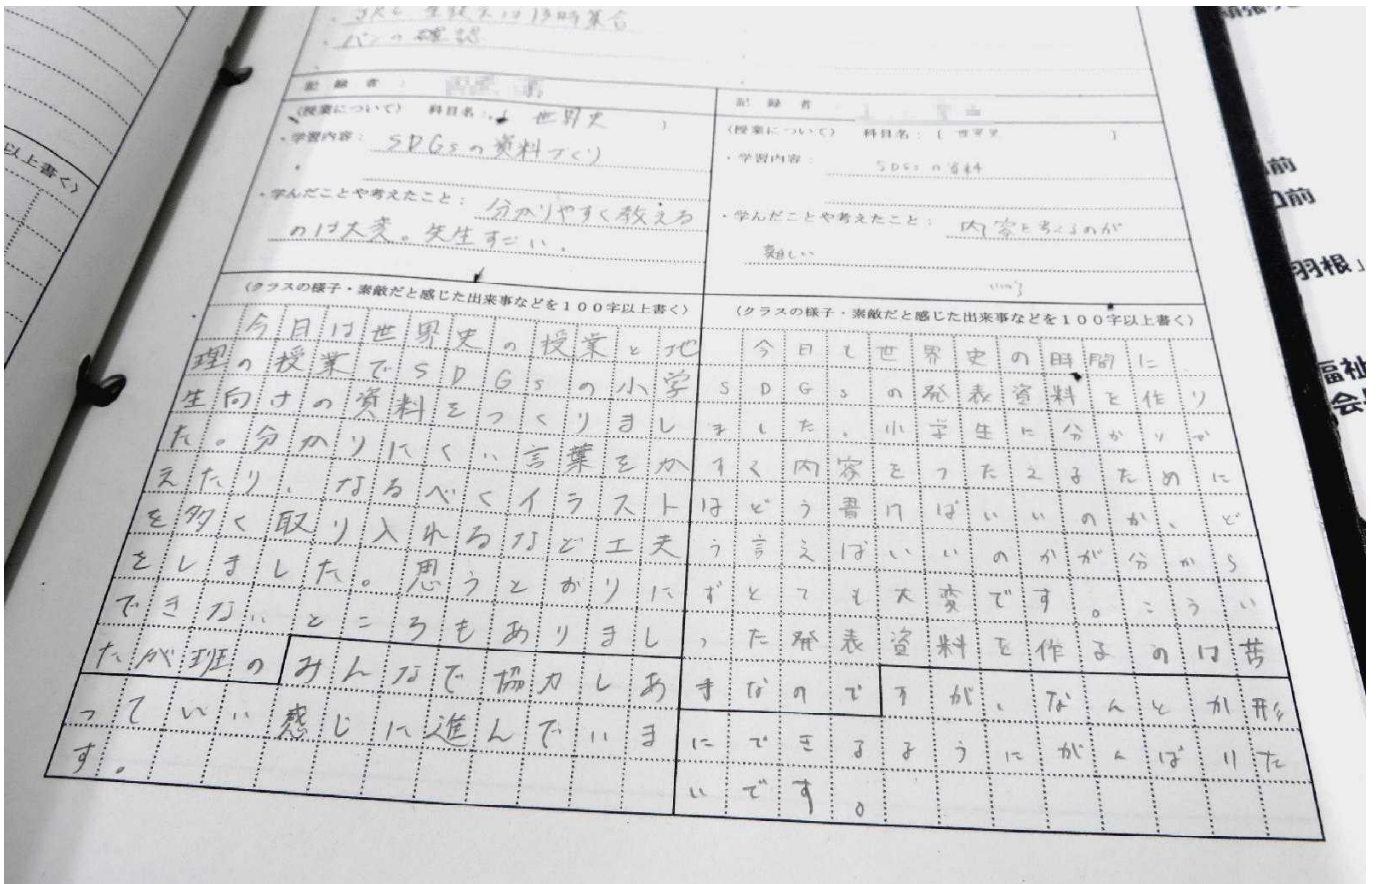 以上書く)
・パンの確認
記録者：
(授業について) 科目名：( 世界史 )
・学習内容： SDGsの資料づくり
・学んだことや考えたこと： 分かりやすく教える
のは大変。先生すごい。
(クラスの様子・素敵だと感じた出来事などを100字以上書く)
今日は世界史の授業と地
理の授業でSDGsの小学
生向けの資料をつくりまし
た。分かりにくい言葉をか
えたり、なるべくイラスト
を多く取り入れるなど工夫
をしました。思うとおりに
できないところもありまし
たが班のみんなで協力しあ
っていい感じに進んでいま
す。
記録者
(授業について) 科目名：( 世界史 )
・学習内容： SDGsの資料
・学んだことや考えたこと： 内容を考えるのが
難しい
(クラスの様子・素敵だと感じた出来事などを100字以上書く)
今日も世界史の時間に
SDGsの発表資料を作り
ました。小学生に分かりや
すく内容をつたえるために
はどう書けばいいのか、ど
う言えばいいのかが分から
ずとても大変です。こうい
った発表資料を作るのは苦
手なのですが、なんとか形
にできるようにがんばりた
いです。
前
口前
羽根」
福祉
会